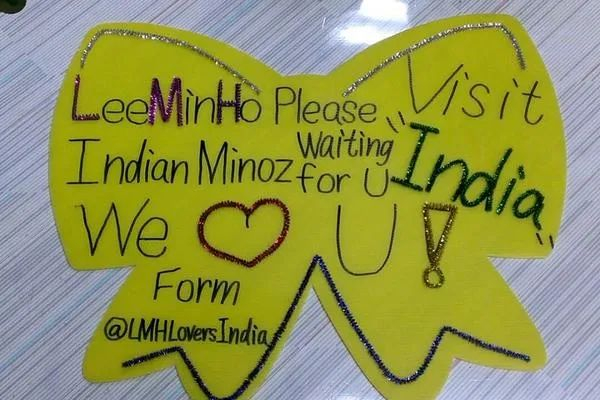 LeeMinHo Please Visit
Indian Minoz Waiting for U "India"
We U !
Form
@LMHLoversIndia